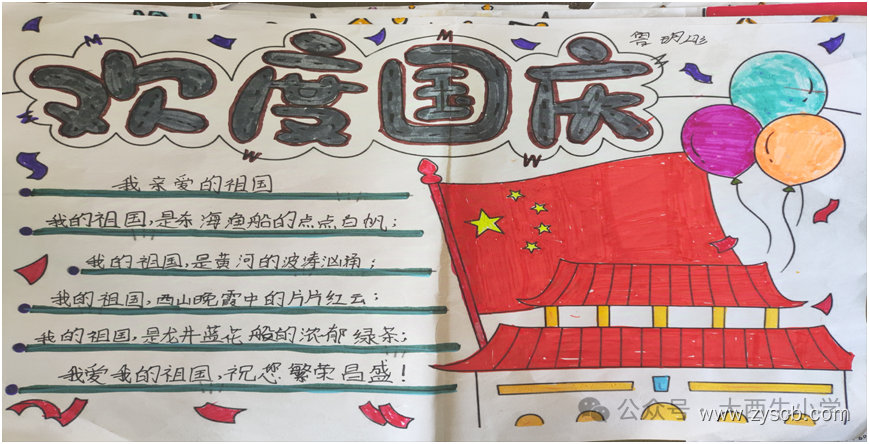 欢度国庆
我亲爱的祖国
我的祖国，是东海渔船的点点白帆；
我的祖国，是黄河的波涛汹涌；
我的祖国，西山晚霞中的片片红云；
我的祖国，是龙井蓝花船的浓郁绿茶；
我爱我的祖国，祝您繁荣昌盛！
公众号
www.zyscb.com